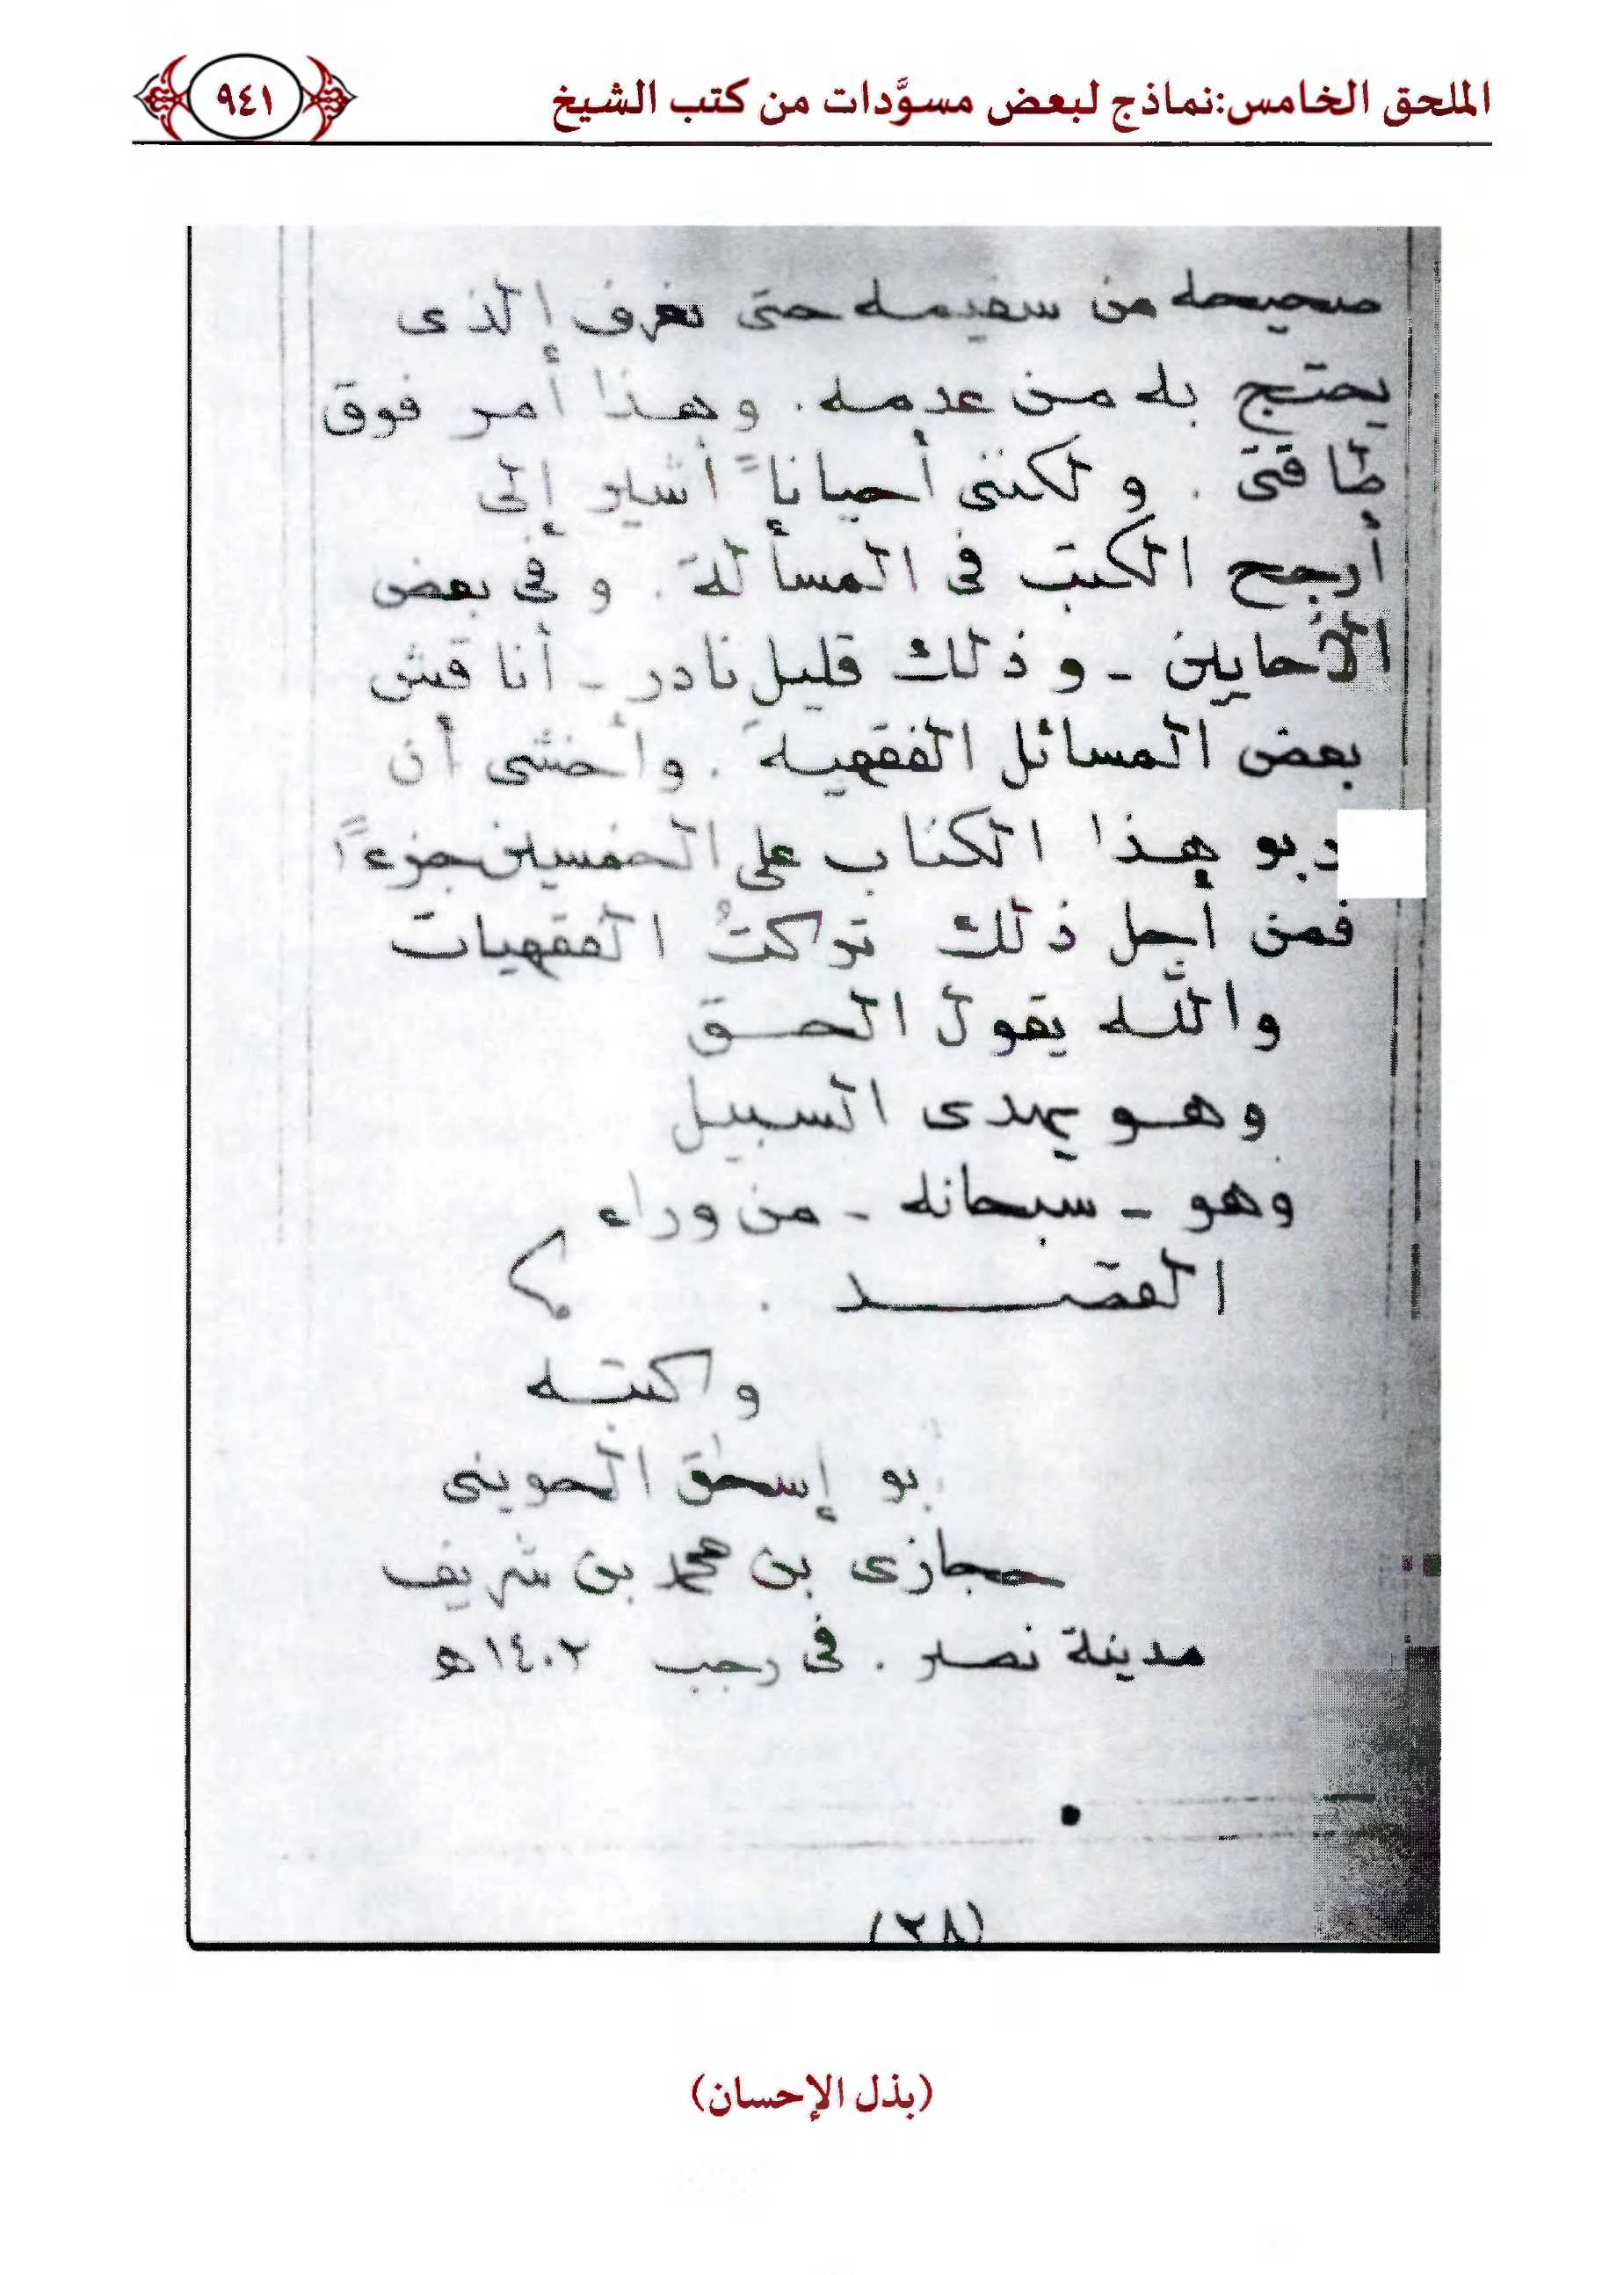 الملحق الخامس:نماذج لبعض مسوَّدات من كتب الشيخ
٩٤١
صحيحه من سقيمه حتى نعرف الذى
يحتج به من عدمه. وهذا أمر فوق
طاقتى . ولكننى أحياناً أشير إلى
أرجح الكتب فى المسألة. وفى بعض
الأحايين - وذلك قليل نادر - أناقش
بعض المسائل الفقهية. وأخشى أن
يربو هذا الكتاب على الخمسين جزءاً
فمن أجل ذلك تركتُ الفقهيات
والله يقول الحق
وهو يهدى السبيل
وهو - سبحانه - من وراء
القصد .
وكتبه
بو إسحق الحوينى
حجازى بن محمد بن شريف
مدينة نصر . فى رجب ١٤٠٢ هـ
(٢٨)
(بذل الإحسان)